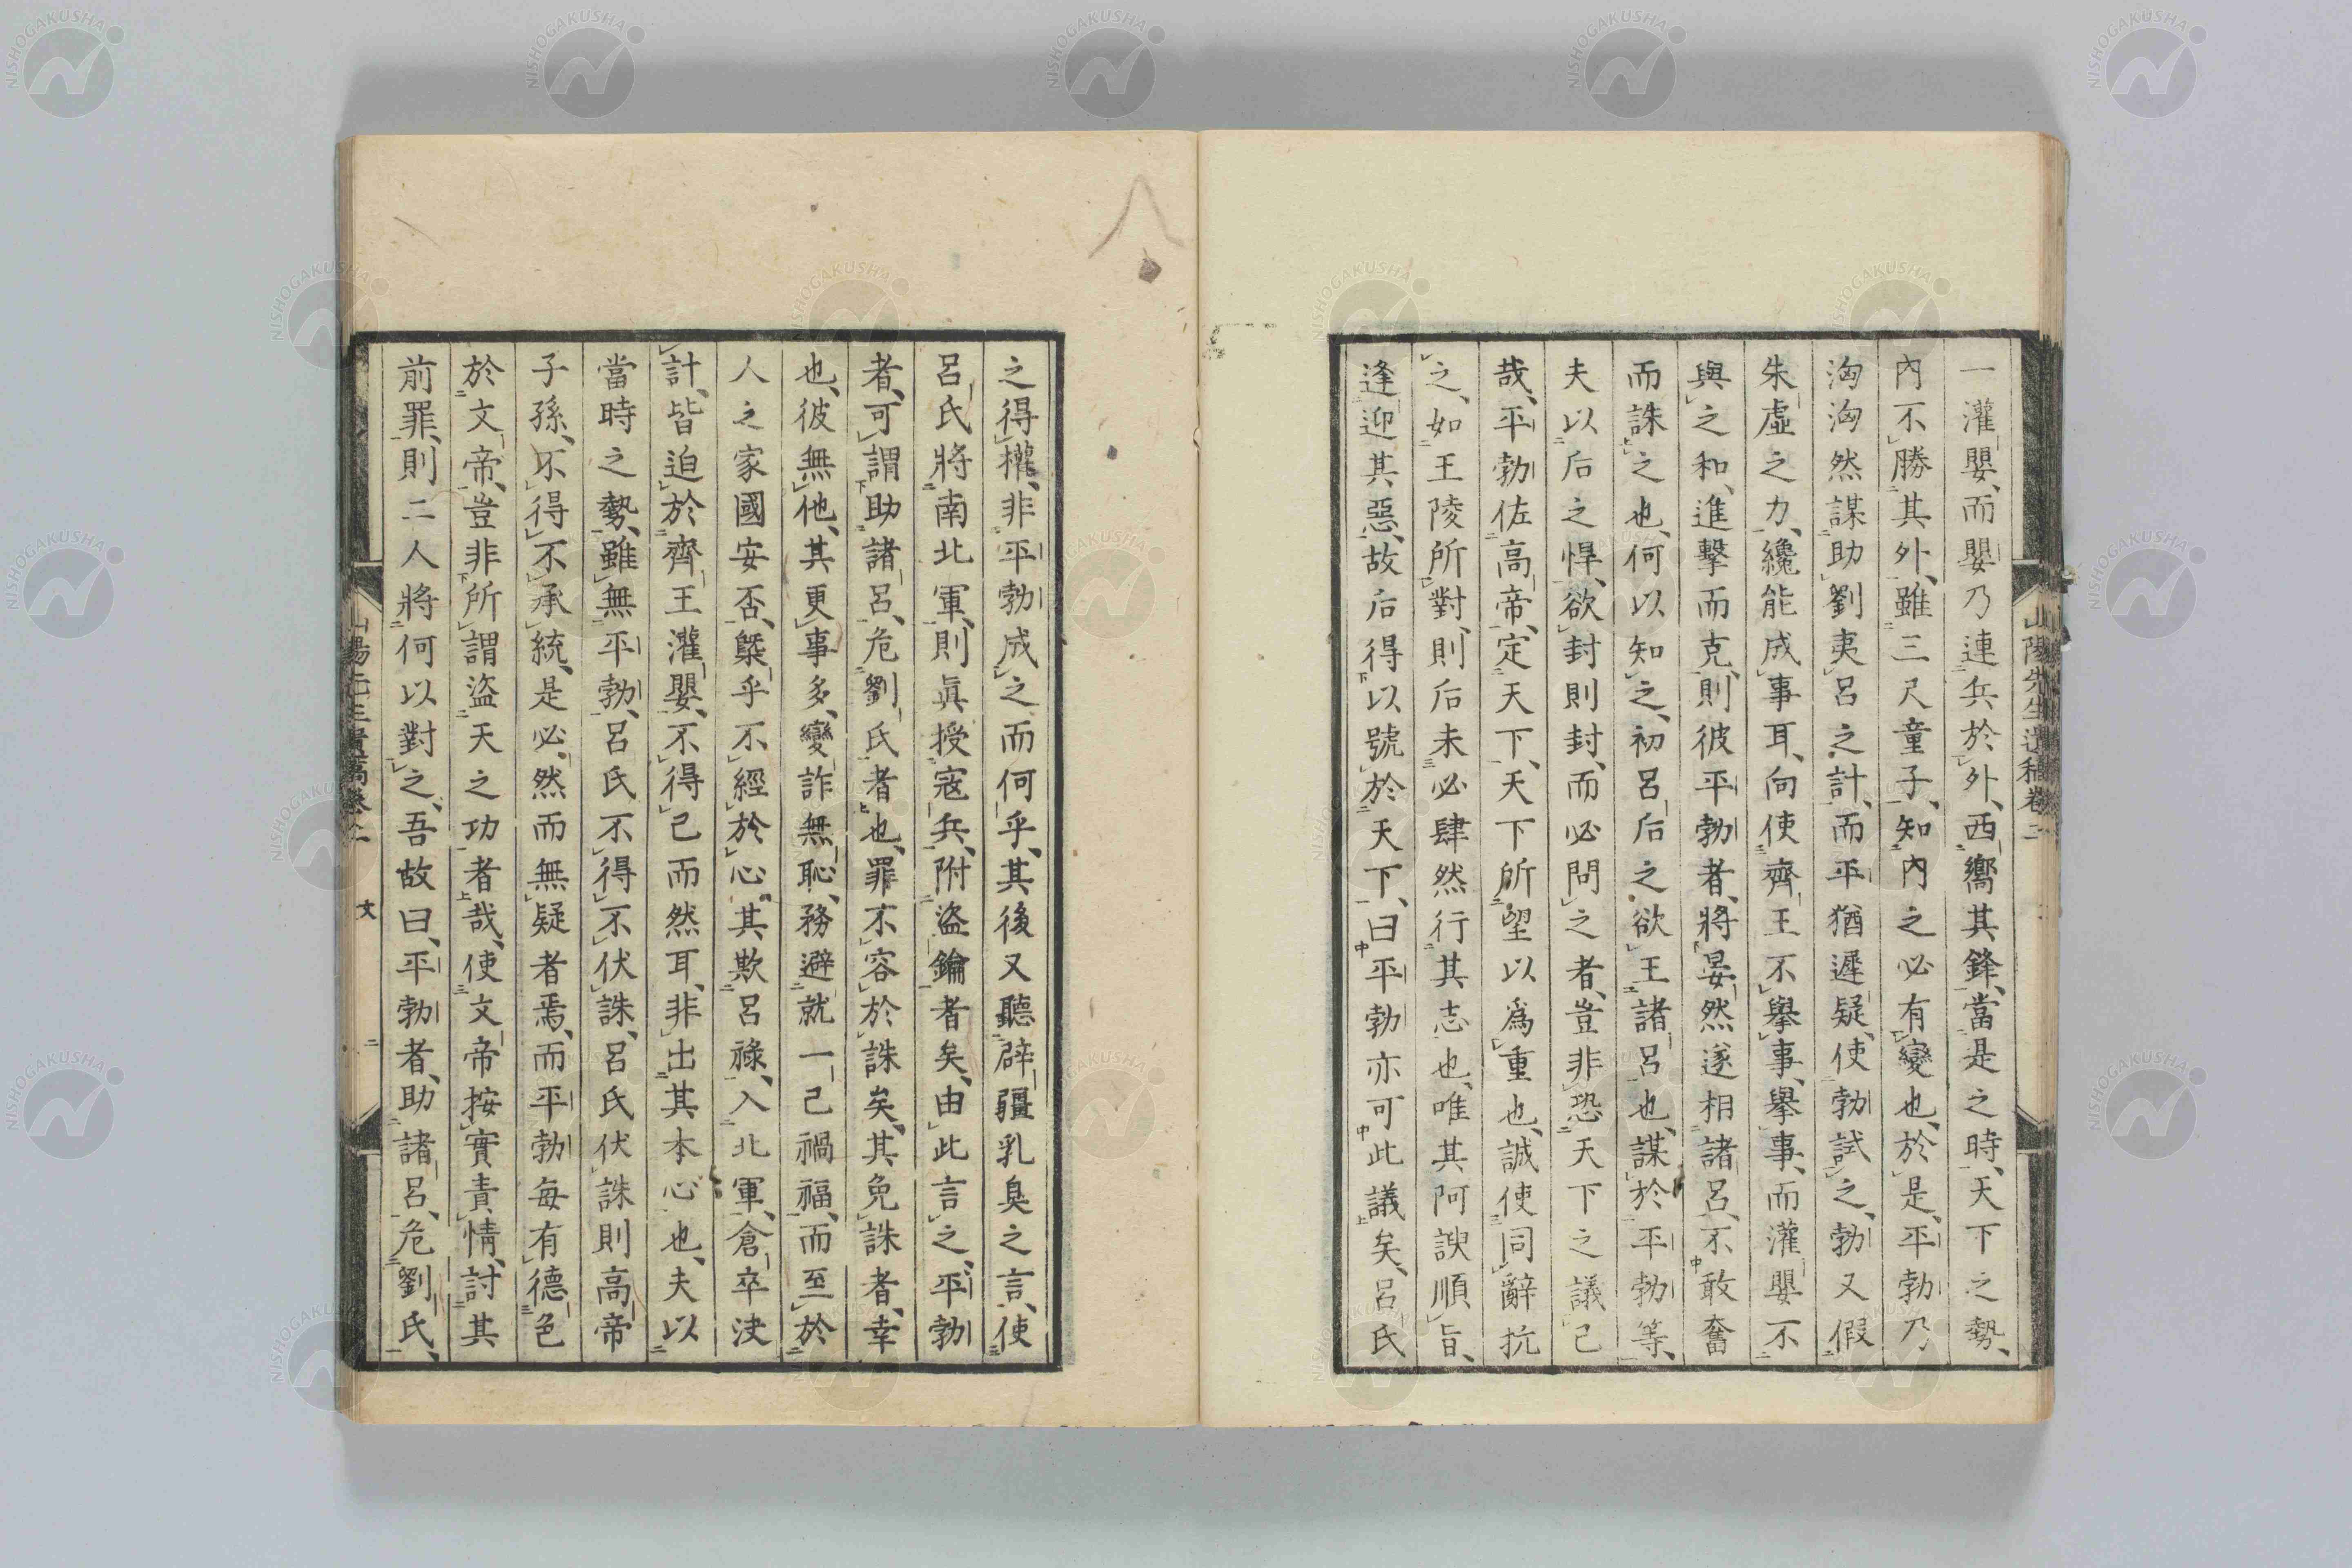 山陽先生遺稿卷二
一灌嬰、而嬰乃連兵於外、西嚮其鋒、當是之時、天下之勢、
內不勝其外、雖三尺童子、知內之必有變也、於是、平勃乃
洶洶然謀助劉夷呂之計、而平猶遲疑、使勃試之、勃又假
朱虛之力、纔能成事耳、向使齊王不擧事、擧事、而灌嬰不
與之和、進擊而克、則彼平勃者、將晏然遂相諸呂、不敢奮
而誅之也、何以知之、初呂后之欲王諸呂也、謀於平勃等、
夫以后之悍、欲封則封、而必問之者、豈非恐天下之議己
哉、平勃佐高帝、定天下、天下所望以爲重也、誠使同辭抗
之、如王陵所對、則后未必肆然行其志也、唯其阿諛順旨、
逢迎其惡、故后得以號於天下、曰平勃亦可此議矣、呂氏
之得權、非平勃成之而何乎、其後又聽辟疆乳臭之言、使
呂氏將南北軍、則眞授寇兵、附盜鑰者矣、由此言之、平勃
者、可謂助諸呂、危劉氏者也、罪不容於誅矣、其免誅者、幸
也、彼無他、其更事多、變詐無恥、務避就一己禍福、而至於
人之家國安否、槩乎不經於心、其欺呂祿、入北軍、倉卒決
計、皆迫於齊王灌嬰、不得已而然耳、非出其本心也、夫以
當時之勢、雖無平勃、呂氏不得不伏誅、呂氏伏誅則高帝
子孫、不得不承統、是必然而無疑者焉、而平勃每有德色
於文帝、豈非所謂盜天之功者哉、使文帝按實責情、討其
前罪、則二人將何以對之、吾故曰、平勃者、助諸呂、危劉氏、
文
二
NISHOGAKUSHA